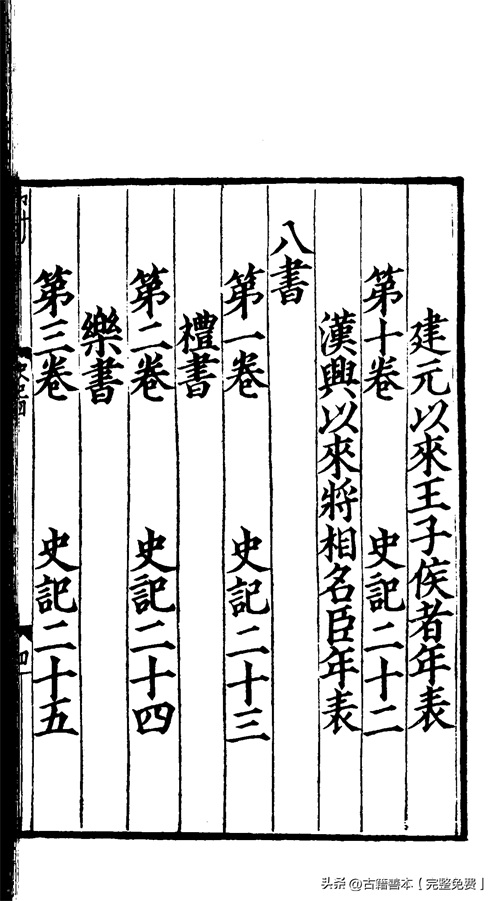 建元以來王子侯者年表
第十卷 史記二十二
漢興以來將相名臣年表
八書
第一卷 史記二十三
禮書
第二卷 史記二十四
樂書
第三卷 史記二十五
四
头条 @古籍善本【完整免费】